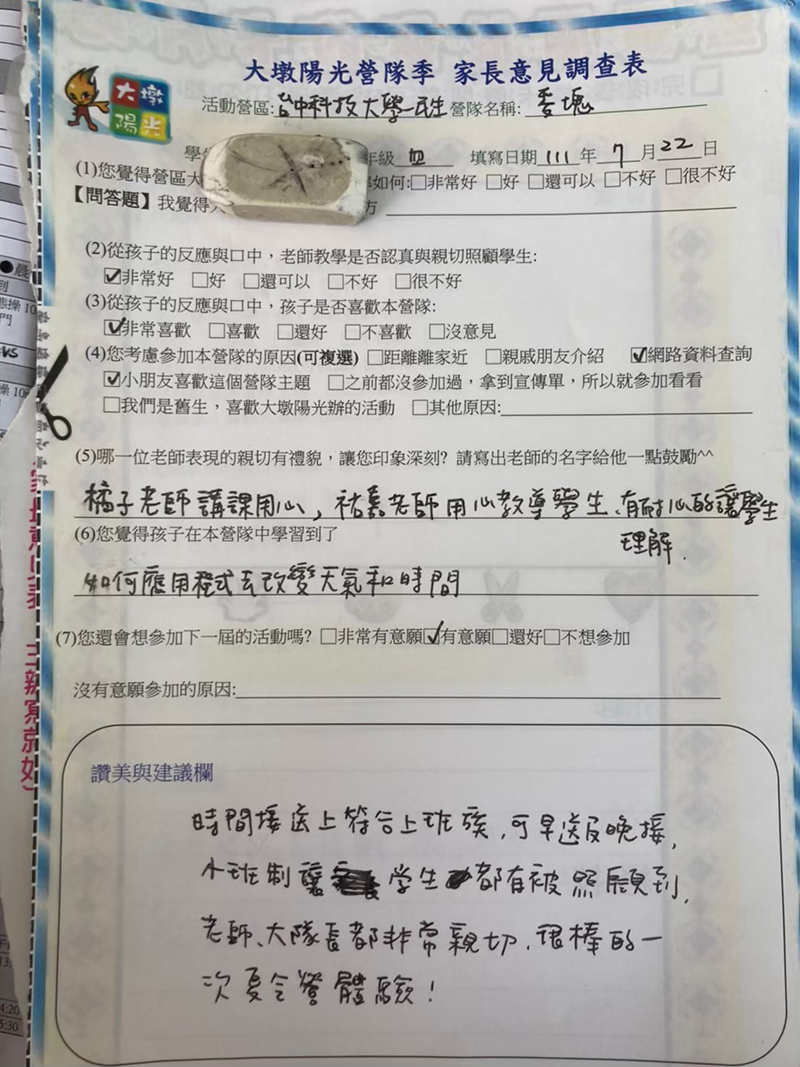 大墩陽光營隊季 家長意見調查表
大墩
陽光
活動營區:台中科技大學-民生 營隊名稱: 麥塊
年級 四 填寫日期 111 年 7 月 22 日
(1)您覺得營區大 如何:□非常好 □好 □還可以 □不好 □很不好
【問答題】我覺得 方
(2)從孩子的反應與口中，老師教學是否認真與親切照顧學生:
☑非常好 □好 □還可以 □不好 □很不好
(3)從孩子的反應與口中，孩子是否喜歡本營隊:
☑非常喜歡 □喜歡 □還好 □不喜歡 □沒意見
(4)您考慮參加本營隊的原因(可複選) □距離離家近 □親戚朋友介紹 ☑網路資料查詢
☑小朋友喜歡這個營隊主題 □之前都沒參加過，拿到宣傳單，所以就參加看看
□我們是舊生，喜歡大墩陽光辦的活動 □其他原因:
(5)哪一位老師表現的親切有禮貌，讓您印象深刻? 請寫出老師的名字給他一點鼓勵^^
橘子老師講課用心，祐嘉老師用心教導學生、有耐心的讓學生
理解.
(6)您覺得孩子在本營隊中學習到了
如何應用程式去改變天氣和時間
(7)您還會想參加下一屆的活動嗎? □非常有意願☑有意願□還好□不想參加
沒有意願參加的原因:
讚美與建議欄
時間接送上符合上班族，可早送及晚接，
小班制讓 學生 都有被照顧到，
老師、大隊長都非常親切，很棒的一
次夏令營體驗！